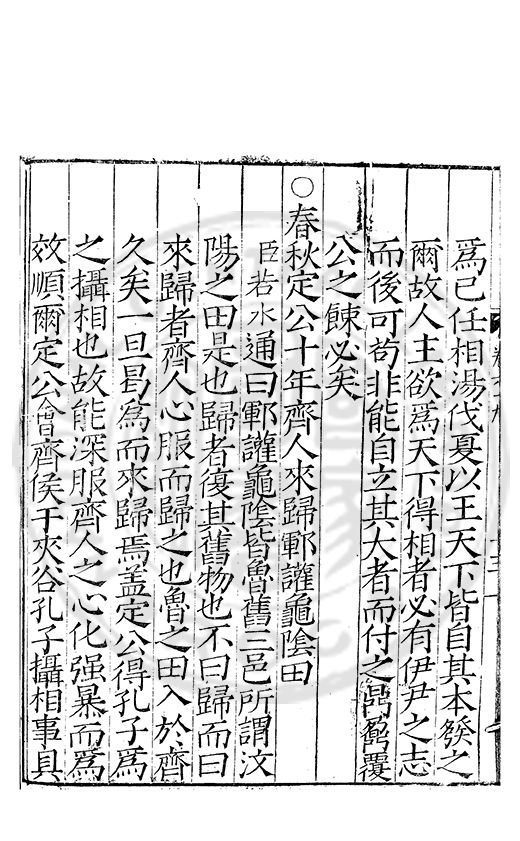 爲已任相湯伐夏以王天下皆自其本發之
爾故人主欲爲天下得相者必有伊尹之志
而後可苟非能自立其大者而付之鼎鉉覆
公之餗必矣
○春秋定公十年齊人來歸鄆讙龜陰田
臣若水通曰鄆讙龜陰皆魯舊三邑所謂汶
陽之田是也歸者復其舊物也不曰歸而曰
來歸者齊人心服而歸之也魯之田入於齊
久矣一旦曷爲而來歸焉盖定公得孔子爲
之攝相也故能深服齊人之心化强暴而爲
效順爾定公會齊侯于夾谷孔子攝相事具